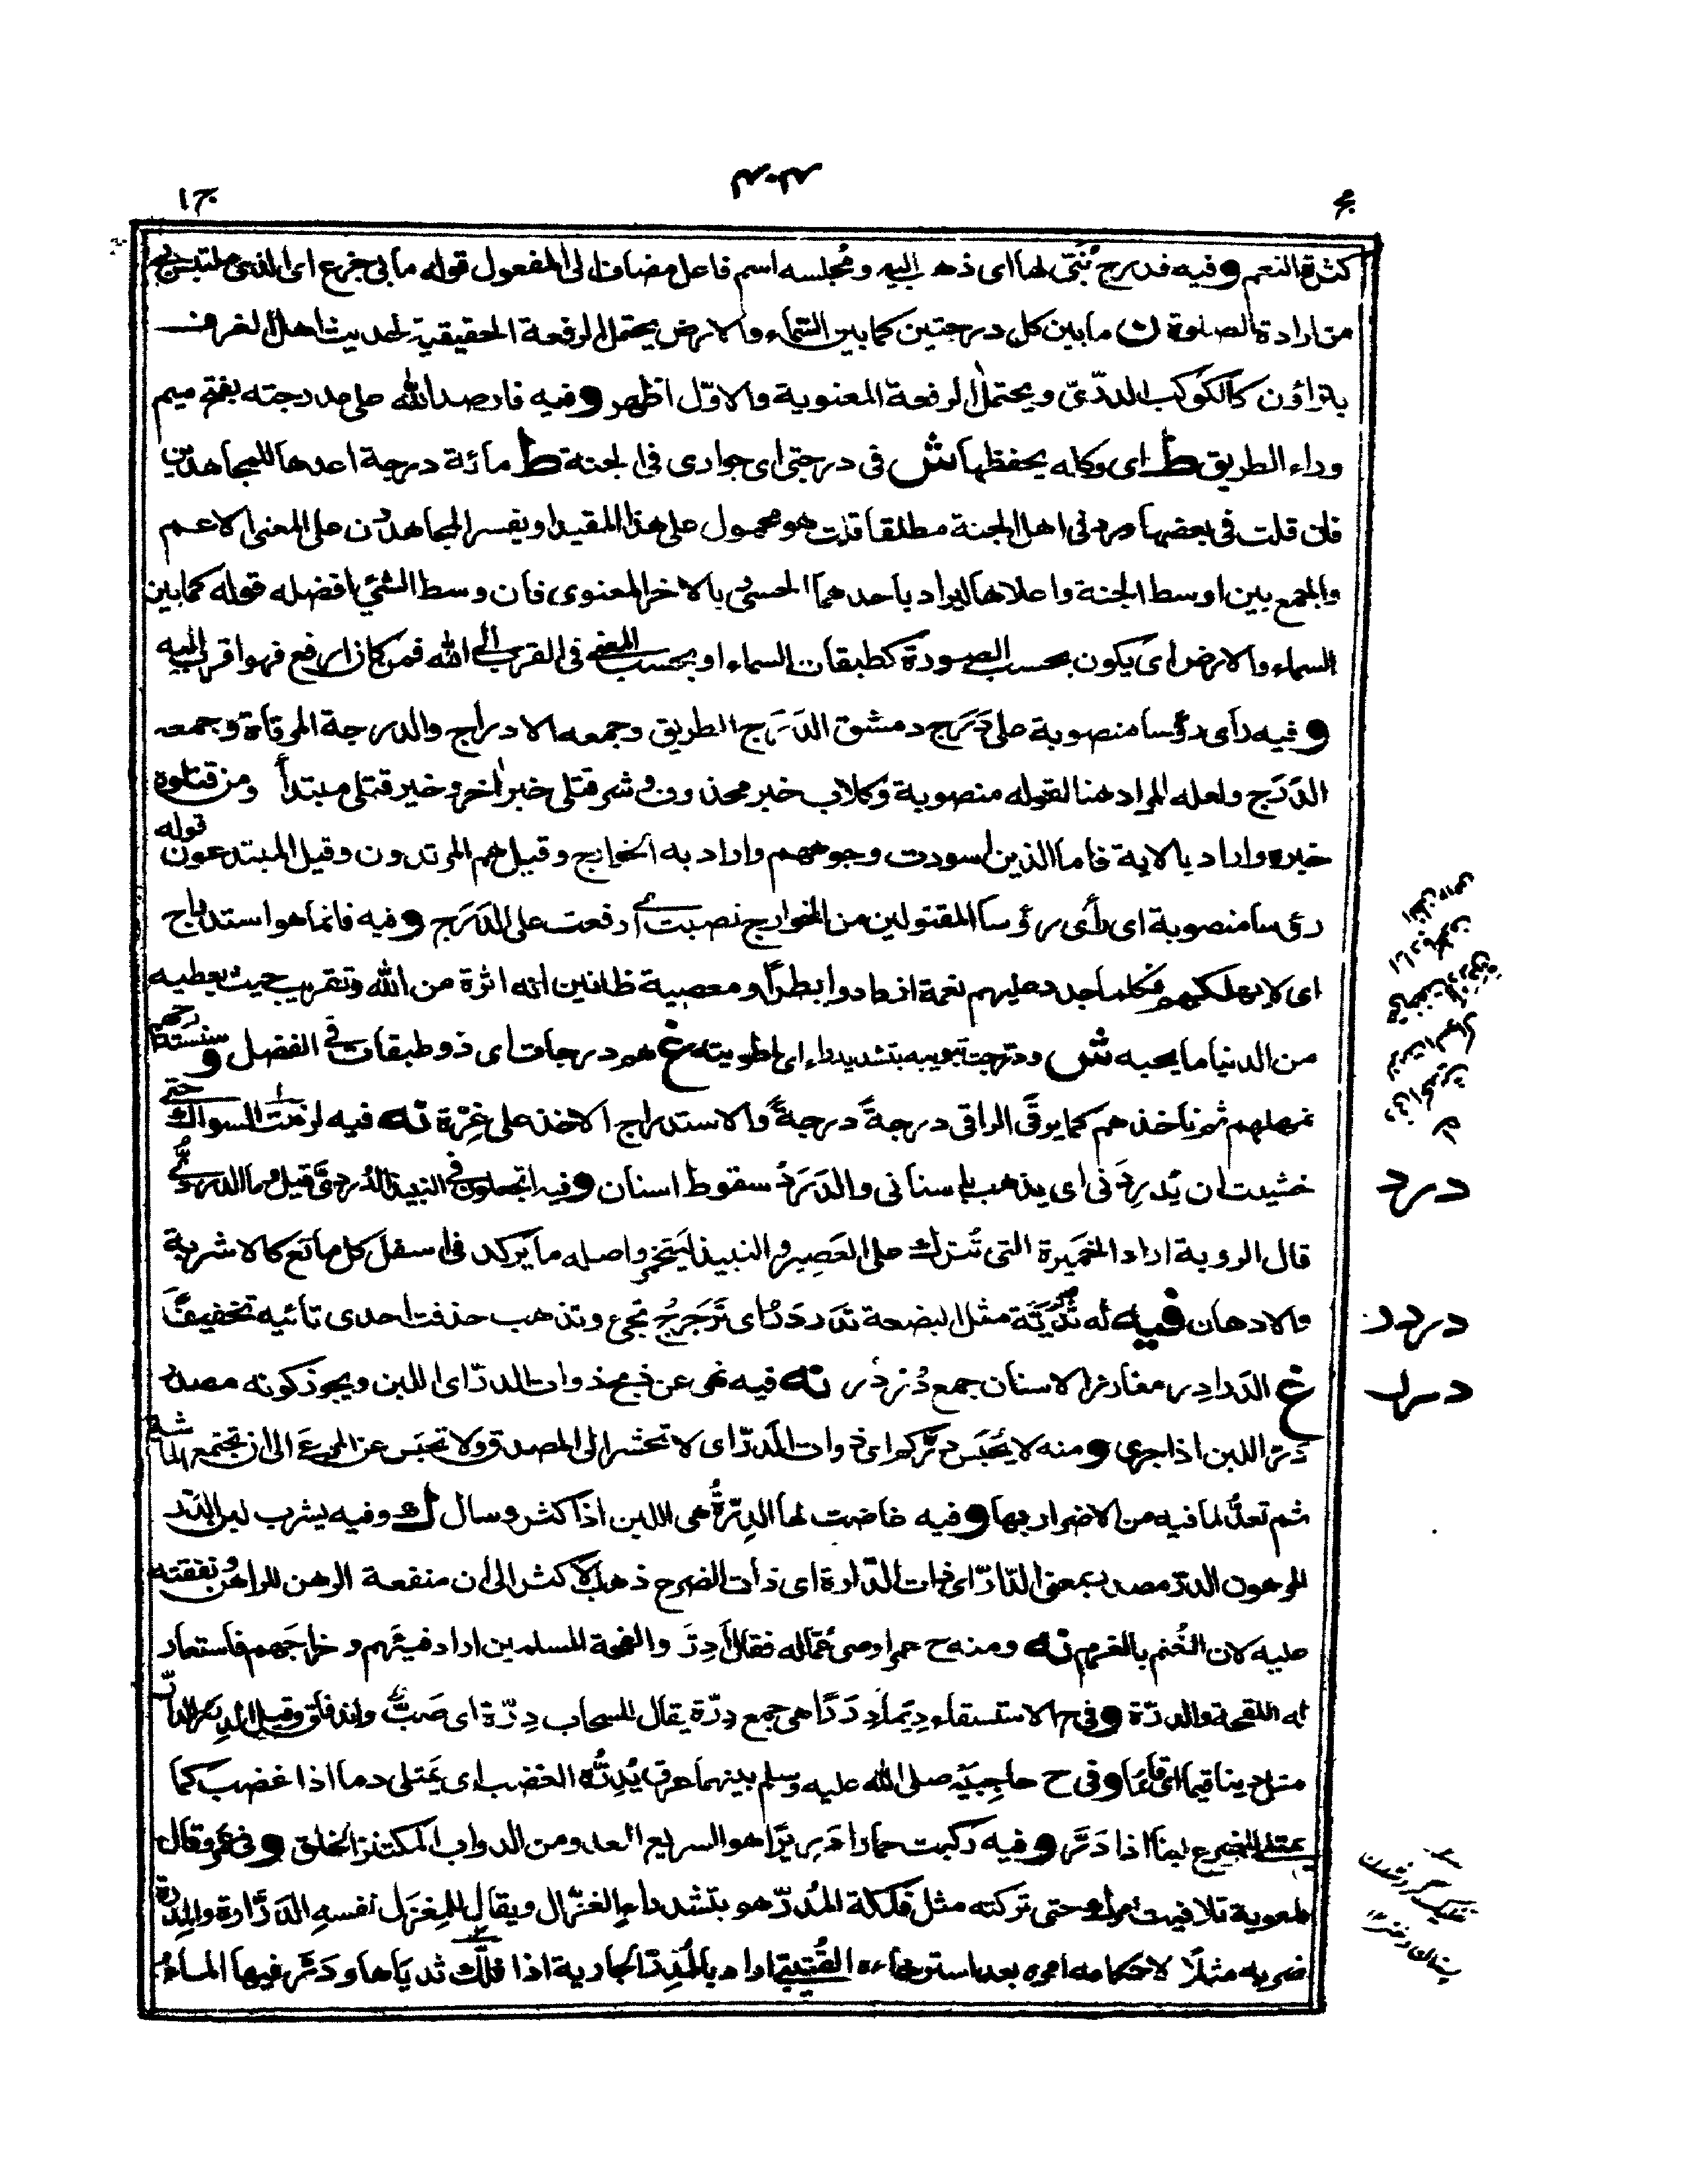 ج ١
كثرة النعم وفيه فدرج بُنَىّ لها اى ذهب اليه ومُجلسه اسم فاعل مضاف الى المفعول قوله ما بى جزع اى الذى ملتبس بى
من ارادة الصلوة ن ما بين كل درجتين كما بين السماء والارض يحتمل الرفعة الحقيقية لحديث اهل الغرف
يتراؤن كالكوكب الدرّىّ ويحتمل الرفعة المعنوية والاوّل اظهر وفيه فارصد الله على مدرجته بفتح ميم
وراء الطريق ط اى وكله يحفظها ش فى درجتى اى جوارى فى الجنة ط مائة درجة اعدها للمجاهدين
فان قلت فى بعضها ورد فى اهل الجنة مطلقا قلت هو محمول على هذا المقيد او يفسر المجاهدون على المعنى الاعم
والجمع بين اوسط الجنة واعلاها ليراد باحدهما الحسى بالاخر المعنوى فان وسط الشئ افضله قوله كما بين
السماء والارض اى يكون بحسب الصورة كطبقات السماء او بحسب المعنى فى القرب الى الله فمن كان ارفع فهو اقرب اليه
وفيه رأى رؤسا منصوبة على دَرَج دمشق الدَرَج الطريق وجمعه الادراج والدرجة المرقاة وجمعه
الدَرَج ولعله المراد هنا لقوله منصوبة وكلاب خبر محذوف وشر قتلى خبر اخر وخير قتلى مبتدأ ومن قتلوه
خبره واراد بالاية فاما الذين اسودت وجوههم واراد به الخوارج وقيل هم المرتدون وقيل المبتدعون قوله
رؤسا منصوبة اى رأى رؤسا المقتولين من الخوارج نصبت اى رفعت على الدَرَج وفيه فانما هو استدراج
اى لا يهلكهم فكلما جدد عليهم نعمة ازدادوا بطرا ومعصية ظانين انه اثرة من الله وتقريب حيث يعطيه
من الدنيا ما يحبه ش ودرجت تبويبه بتشديد راء اى طويته غ هم درجات اى ذو طبقات فى الفضل و سنستدرجهم
نمهلهم ثم ناخذهم كما يرقَّى الراقى درجةً درجةً والاستدراج الاخذ على غِرّة نه فيه لزمت السواك حتى
خشيت ان يُدرِدَ نى اى يذهب باسنانى والدَرَدُ سقوط اسنان وفيه اتجعلون فى النبيذ الدُردِىَّ قيل وما الدردىُّ
قال الروبة اراد الخميرة التى تُترك على العصير والنبيذ ليتخمر واصله ما يركد فى اسفل كل مائع كالاشربة
والادهان فيه له ثُدَيَّة مثل البضعة تَدَردَرُ اى تَرَجرَجُ تجئ وتذهب حذفت احدى تائيه تخفيفًا
غ الدَرادِر مغارز الاسنان جمع دُردُر نه فيه نهى عن ذبح ذوات الدرّ اى اللبن ويجوز كونه مصدر
دَرَّ اللبن اذا جرى ومنه لا يُحبَس دَرُّكم اى ذوات الدرّ اى لا تحشر الى المصدق ولا تحبَس عن المرعَى الى ان تجتمع الماشية
ثم تعدُّ لما فيه من الاضرار بها وفيه غاضت لها الدِرّةُ هى اللبن اذا كثر وسال ك وفيه يشرب لبن الدَرّ
المرهون الدرّ مصدر بمعنى الدّارّ اى ذات الدّارة اى ذات الضرع ذهب الاكثر الى ان منفعة الرهن للراهن ونفقته
عليه لان الغُنم بالغرم نه ومنه ح عمر اوصى عُمّاله فقال ادِرّ والقحة المسلمين اراد فيئهم وخراجهم فاستعار
له اللقحة والدرّة وفى ح الاستسقاء دِيَمًا دِرَرًا هى جمع دِرّة يقال للسحاب دِرّة اى صَبٌّ واندفاق وقيل الدِرَر الدارّ
مثل دينا قيما اى قائما وفى ح حاجِبيه صلى الله عليه وسلم بينهما عرق يُدِرُّه الغضب اى يمتلى دما اذا غضب كما
يمتلئ الضرع لبنًا اذا دَرَّ وفيه ركبت حمارا دَرِيرًا هو السريع العدو من الدواب المكتنز الخلق وفى ح عمرو قال
لمعوية تلافيت امرك حتى تركته مثل فَلكة المُدِرّ هو بتشديد راء الغزّال ويقال للمِغزَل نفسه الدَرَّارة والمِدَرّة
ضربه مثلاً لاحكامه امره بعد استرخاءه القُتيبى اراد بالمُدِرّ الجارية اذا فلَّك ثدياها ودَرَّ فيها الماءُ
درد
دردر
درر